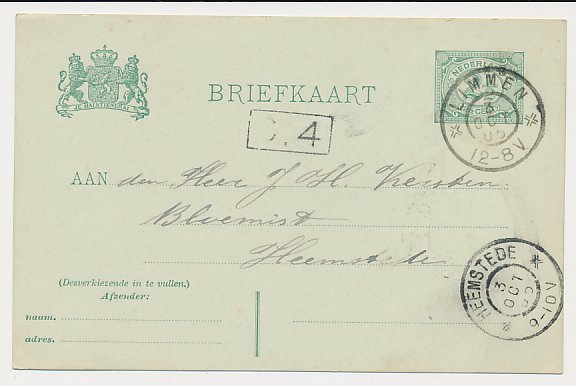 JE MAINTIENDRAI
BRIEFKAART
NEDERLAND
LIMMEN
3
OCT
05
12-8 V
.4
AAN den Heer J H. Kersten.
Bloemist
Heemstede
HEEMSTEDE
3
OCT
05
9-10V
(Desverkiezende in te vullen.)
Afzender:
naam.
adres.